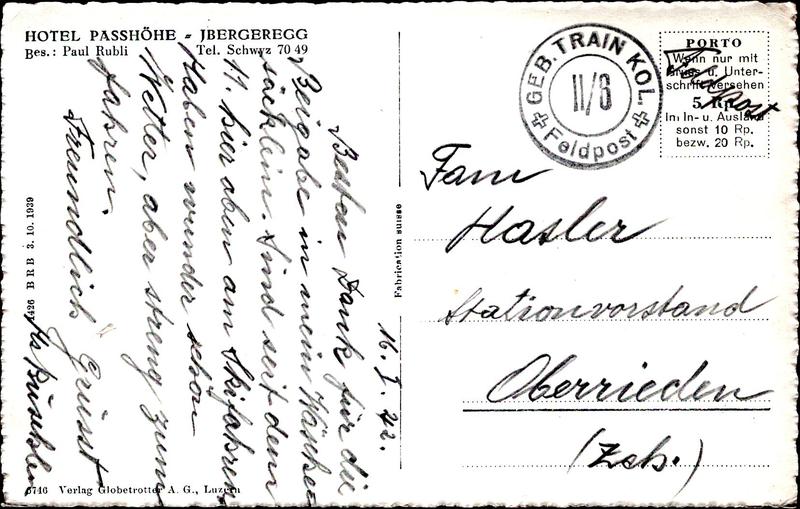 HOTEL PASSHÖHE - JBERGEREGG
Bes.: Paul Rubli Tel. Schwyz 70 49
16. I. 42.
Besten Dank für die
Beigabe in mein Wäsche-
säcklein. Sind seit dem
11. hier oben am Skifahren
Haben wunder schön
Wetter, aber streng zum
fahren.
Freundlich Grüsst
6746 Verlag Globetrotter A. G., Luzern
4426 B R B 3. 10. 1939
Fabrication suisse
GEB. TRAIN KOL.
II/6
Feldpost
PORTO
Wenn nur mit
Gruss u. Unter-
schrift versehen
5 Rp.
In In- u. Ausland
sonst 10 Rp.
bezw. 20 Rp.
Feldpost
Fam
Hasler
Stationvorstand
Oberrieden
(Zch.)